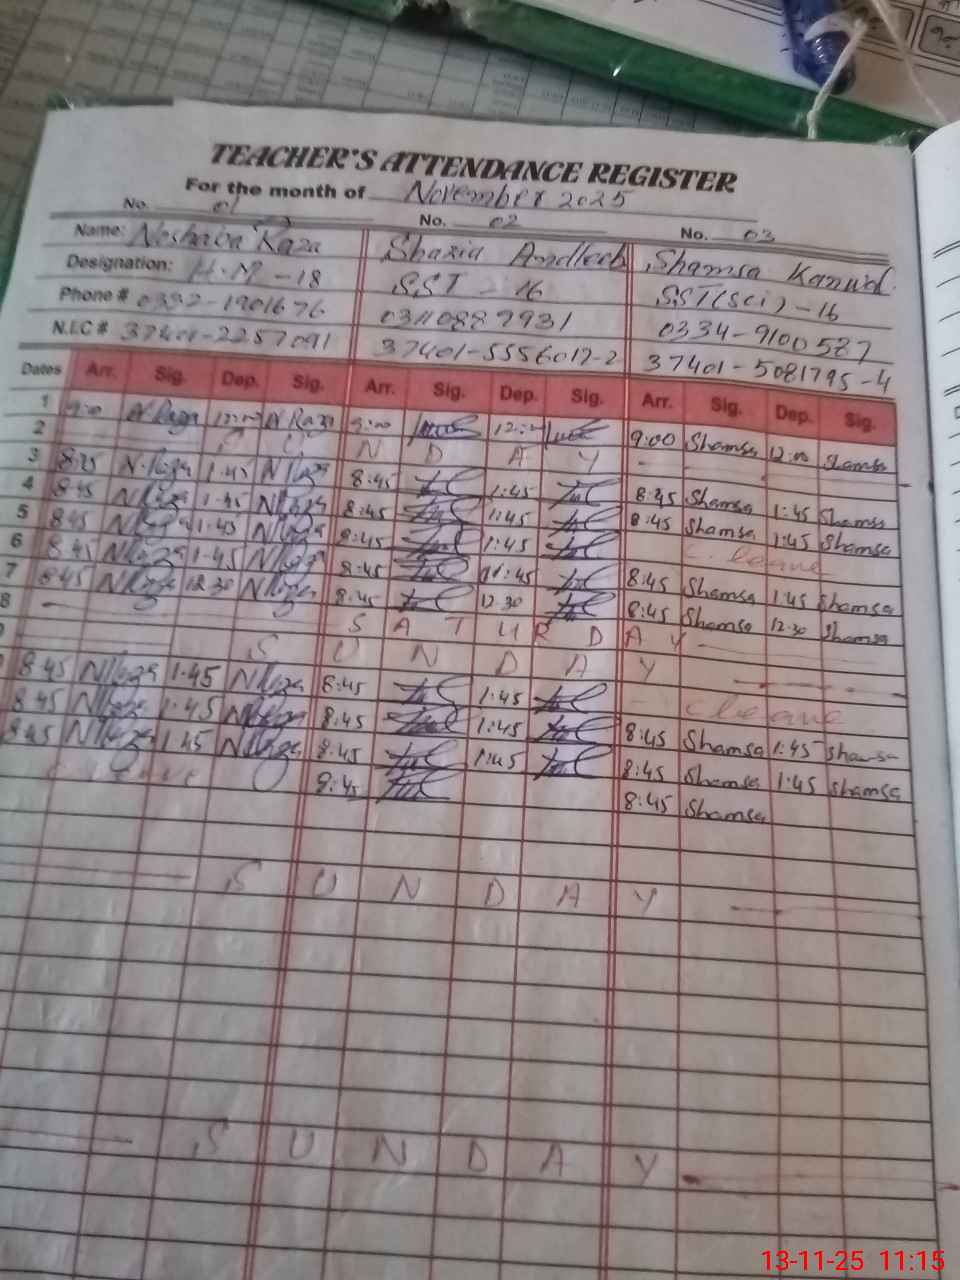 TEACHER'S ATTENDANCE REGISTER
For the month of November 2025
No. 01 No. 02 No. 03
Name: Noshaba Raza Shazia Andleeb Shamsa Kanwal
Designation: H.M - 18 SST - 16 SST(Sci) - 16
Phone # 0332-1901676 03110887931 0334-9100587
N.I.C # 37401-2257091 37401-5556017-2 37401-5081795-4
Dates Arr. Sig. Dep. Sig. Arr. Sig. Dep. Sig. Arr. Sig. Dep. Sig.
1 9:00 N Raza 12:00 N Raza 9:00 12:00 9:00 Shamsa 12:00 Shamsa
2 S U N D A Y
3 8:45 N.Raza 1.45 N Raza 8:45 1:45 8:45 Shamsa 1:45 Shamsa
4 8:45 N Raza 1.45 N Raza 8:45 1:45 8:45 Shamsa 1:45 Shamsa
5 8:45 N Raza 1.45 N Raza 8:45 1:45 C. leave
6 8:45 N Raza 1.45 N Raza 8:45 1:45 8:45 Shamsa 1:45 Shamsa
7 8:45 N Raza 12.30 N Raza 8:45 12.30 8:45 Shamsa 12.30 Shamsa
8 S A T U R D A Y
S U N D A Y
8:45 N Raza 1.45 N Raza 8:45 1:45 C leave
8:45 N Raza 1.45 N Raza 8:45 1:45 8:45 Shamsa 1:45 Shamsa
8:45 N Raza 1.45 N Raza 8:45 1:45 8:45 Shamsa 1:45 Shamsa
C leave 8:45 8:45 Shamsa
S U N D A Y
S U N D A Y
13-11-25 11:15